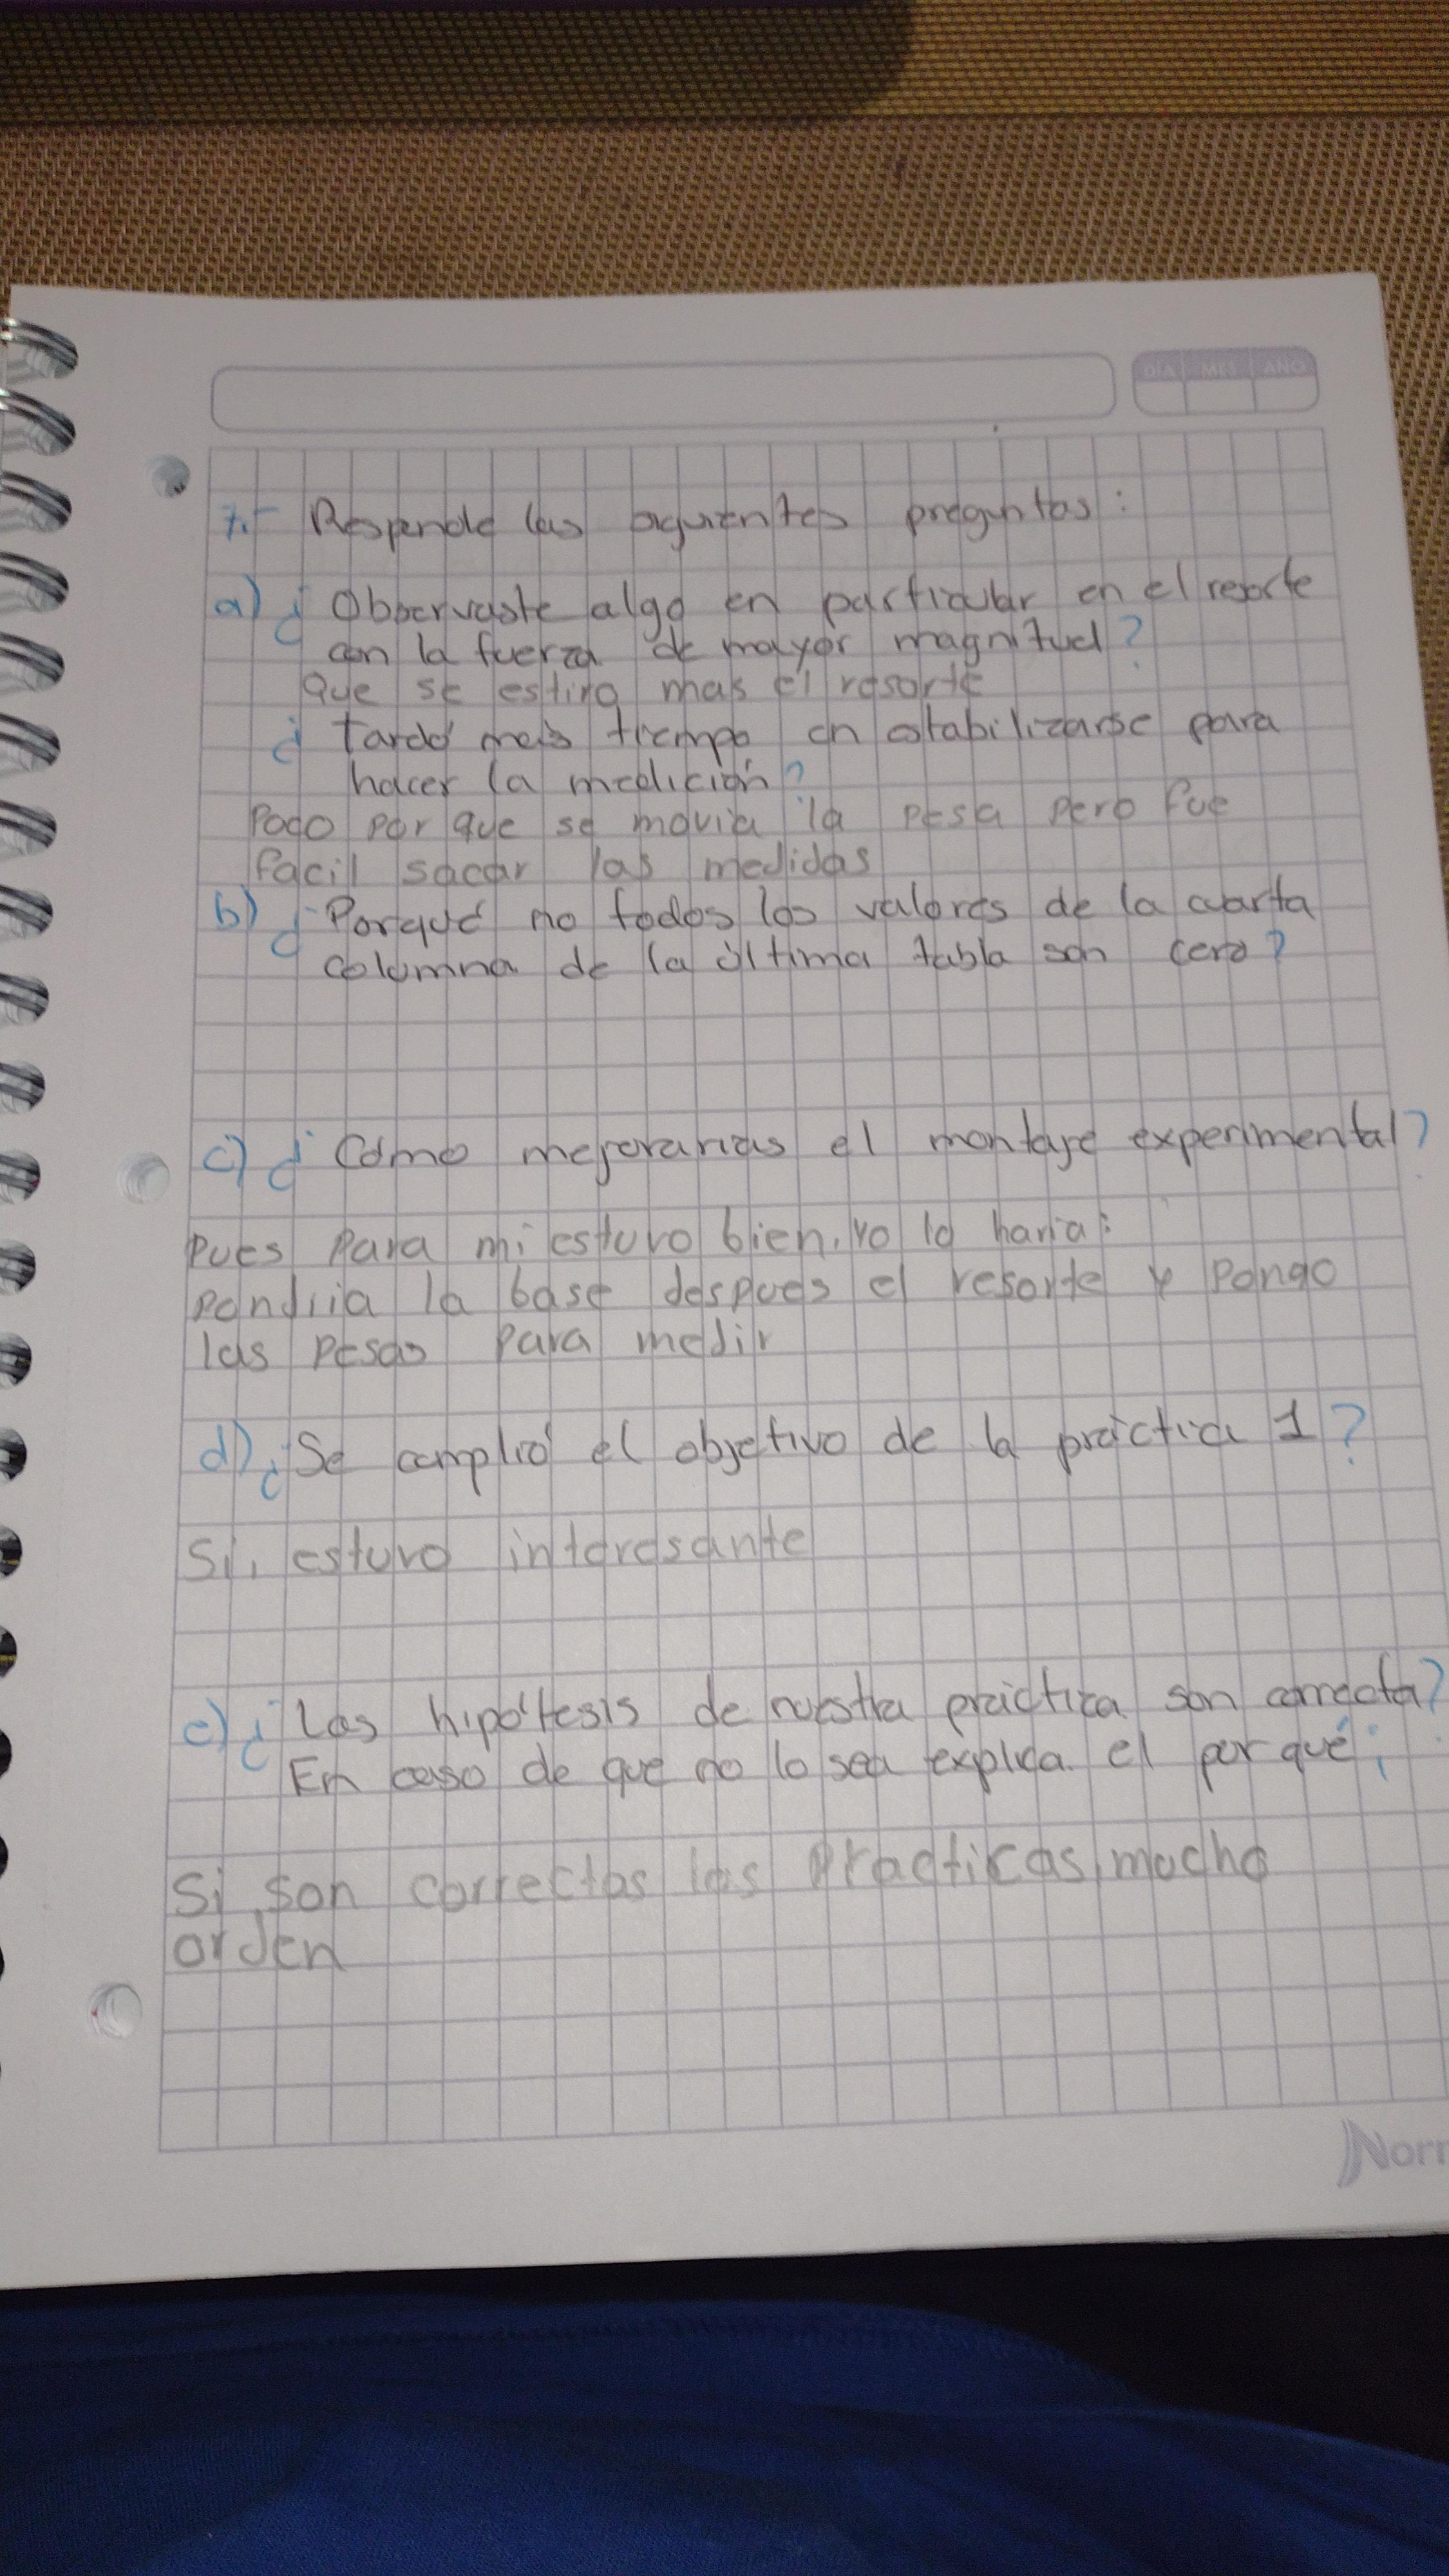 DÍA MES AÑO
7.- Responde las siguientes preguntas:
a) ¿Observaste algo en particular en el resorte
con la fuerza de mayor magnitud?
Que se estiro mas el resorte
¿Tardó más tiempo en estabilizarse para
hacer la medición?
Poco por que se movia la pesa pero fue
facil sacar las medidas
b) ¿Porqué no todos los valores de la cuarta
columna de la última tabla son cero?
c) ¿Cómo mejorarias el montaje experimental?
Pues para mi estuvo bien, yo lo haria:
pondria la base despues el resorte y pongo
las pesas para medir
d) ¿Se cumplió el objetivo de la práctica 1?
Si, estuvo interesante
e) ¿Las hipótesis de nuestra práctica son correcta?
En caso de que no lo sea explica el por qué;
Si, son correctas las practicas, mucho
orden
Norr